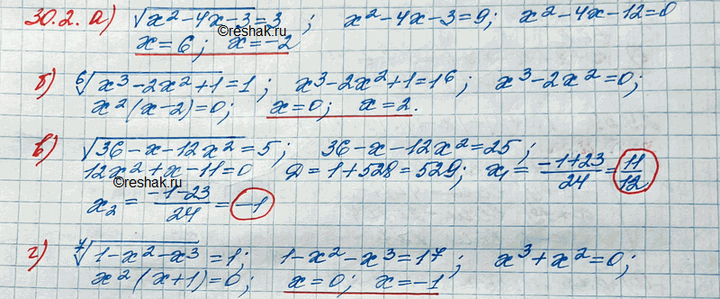 30.2. а) √(x²-4x-3)=3; x²-4x-3=9; x²-4x-12=0
x=6; x=-2
©reshak.ru
б) ⁶√(x³-2x²+1)=1; x³-2x²+1=1⁶; x³-2x²=0;
x²(x-2)=0; x=0; x=2.
в) √(36-x-12x²)=5; 36-x-12x²=25;
12x²+x-11=0 D=1+528=529; x₁=(-1+23)/24=11/12
©reshak.ru
x₂=(-1-23)/24=-1
г) ⁷√(1-x²-x³)=1; 1-x²-x³=1⁷; x³+x²=0;
x²(x+1)=0; x=0; x=-1